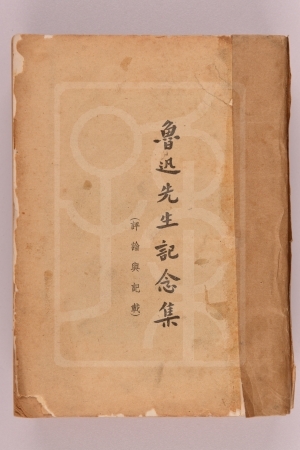 魯迅先生記念集
(評論與記載)